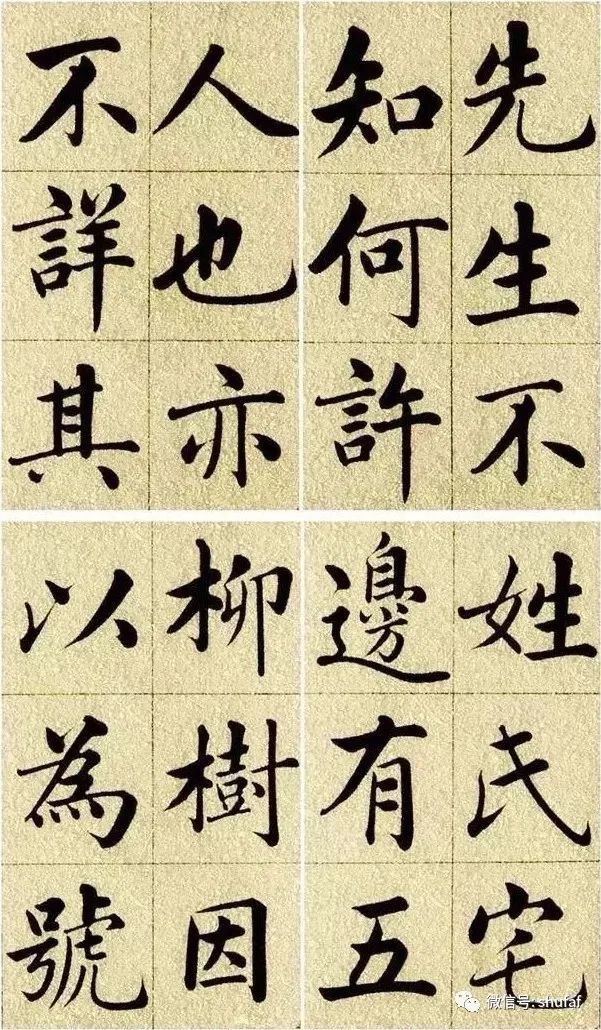 先生不
知何許
人也亦
不詳其
姓氏宅
邊有五
柳樹因
以為號
微信号: shufaf